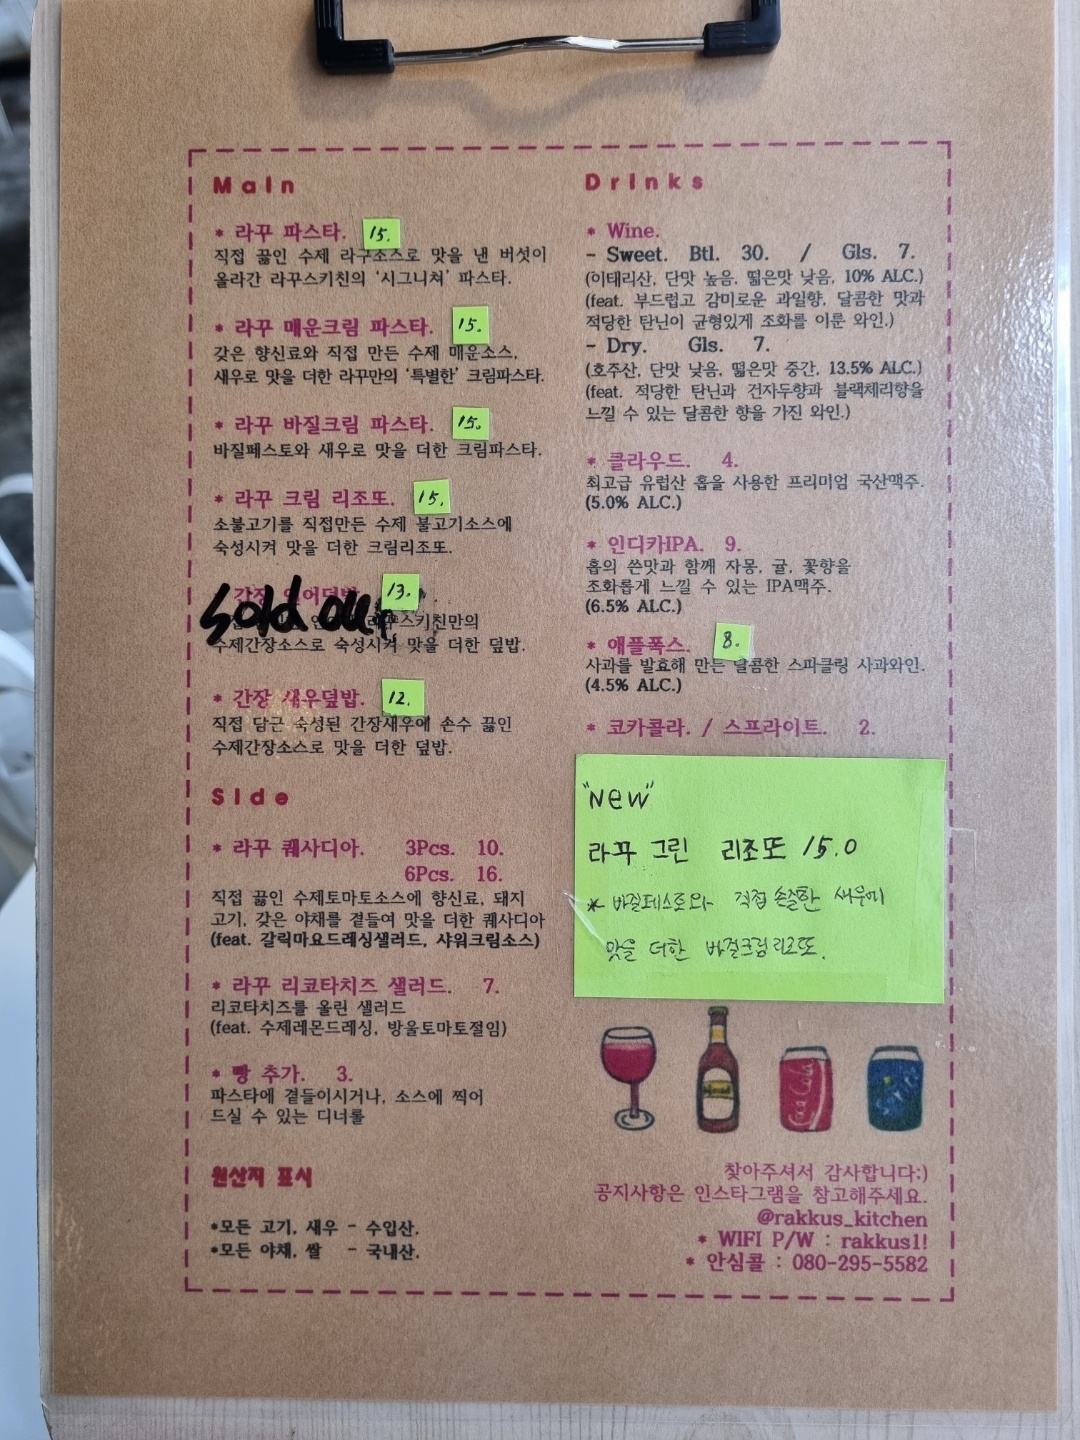 Main
* 라꾸 파스타. 15.
직접 끓인 수제 라구소스로 맛을 낸 버섯이
올라간 라꾸스키친의 '시그니쳐' 파스타.
* 라꾸 매운크림 파스타. 15.
갖은 향신료와 직접 만든 수제 매운소스,
새우로 맛을 더한 라꾸만의 '특별한' 크림파스타.
* 라꾸 바질크림 파스타. 15.
바질페스토와 새우로 맛을 더한 크림파스타.
* 라꾸 크림 리조또. 15.
소불고기를 직접만든 수제 불고기소스에
숙성시켜 맛을 더한 크림리조또.
간장 연어덮밥. 13.
Sold out
라꾸스키친만의
수제간장소스로 숙성시켜 맛을 더한 덮밥.
* 간장 새우덮밥. 12.
직접 담근 숙성된 간장새우에 손수 끓인
수제간장소스로 맛을 더한 덮밥.
Side
* 라꾸 퀘사디아. 3Pcs. 10.
6Pcs. 16.
직접 끓인 수제토마토소스에 향신료, 돼지
고기, 갖은 야채를 곁들여 맛을 더한 퀘사디아
(feat. 갈릭마요드레싱샐러드, 샤워크림소스)
* 라꾸 리코타치즈 샐러드. 7.
리코타치즈를 올린 샐러드
(feat. 수제레몬드레싱, 방울토마토절임)
* 빵 추가. 3.
파스타에 곁들이시거나, 소스에 찍어
드실 수 있는 디너롤
원산지 표시
*모든 고기, 새우 - 수입산.
*모든 야채, 쌀 - 국내산.
Drinks
* Wine.
- Sweet. Btl. 30. / Gls. 7.
(이태리산, 단맛 높음, 떫은맛 낮음, 10% ALC.)
(feat. 부드럽고 감미로운 과일향, 달콤한 맛과
적당한 탄닌이 균형있게 조화를 이룬 와인.)
- Dry. Gls. 7.
(호주산, 단맛 낮음, 떫은맛 중간, 13.5% ALC.)
(feat. 적당한 탄닌과 건자두향과 블랙체리향을
느낄 수 있는 달콤한 향을 가진 와인.)
* 클라우드. 4.
최고급 유럽산 홉을 사용한 프리미엄 국산맥주.
(5.0% ALC.)
* 인디카IPA. 9.
홉의 쓴맛과 함께 자몽, 귤, 꽃향을
조화롭게 느낄 수 있는 IPA맥주.
(6.5% ALC.)
* 애플폭스. 8.
사과를 발효해 만든 달콤한 스파클링 사과와인.
(4.5% ALC.)
* 코카콜라. / 스프라이트. 2.
"New"
라꾸 그린 리조또 15.0
* 바질페스토와 직접 손질한 새우에
맛을 더한 바질크림리조또.
찾아주셔서 감사합니다:)
공지사항은 인스타그램을 참고해주세요.
@rakkus_kitchen
* WIFI P/W : rakkus1!
* 안심콜 : 080-295-5582